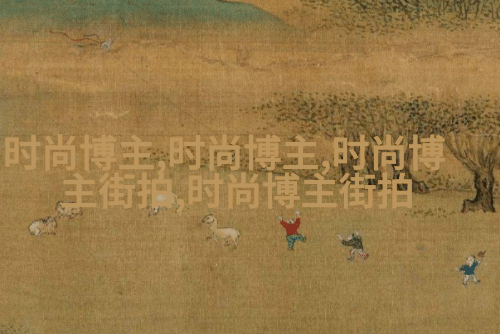 时尚博主,时尚博主,时尚博
主街拍,时尚博主街拍